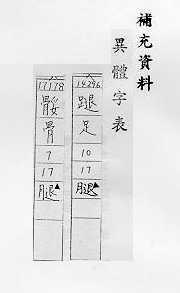 補充資料
異體字表
14296
蹆
足
10
17
腿▲
17178
骽
骨
7
17
腿▲